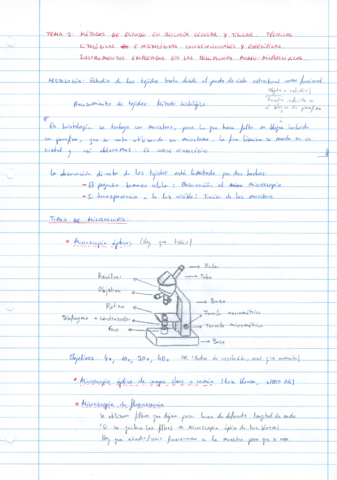 TEMA 2: MÉTODOS DE ESTUDIO EN BIOLOGÍA CELULAR Y TISULAR. TÉCNICAS
CITOLÓGICAS E HISTOLÓGICAS, CONVENCIONALES Y ESPECÍFICAS.
INSTRUMENTOS EMPLEADOS EN LAS DISCIPLINAS MICRO-MICROSCÓPICAS.
HISTOLOGÍA: Estudio de los tejidos tanto desde el punto de vista estructural como funcional.
Procesamiento de tejidos: Método histológico
En histología se trabaja con muestras, para lo que hace falta un bloque incluido
en parafina, que se corta utilizando un microtomo. La fina lámina se monta en un
cristal y así obtenemos: El corte histológico
La observación directa de los tejidos está limitada por dos hechos:
- El pequeño tamaño celular: Observación al microscopio
- La transparencia a la luz visible: Tinción de las muestras
TIPOS DE MICROSCOPIO:
• Microscopio óptico (Hay que teñir)
Ocular
Revólver
Tubo
Objetivo
Brazo
Platina
Tornillo macrométrico
Diafragma o condensador
Tornillo micrométrico
Foco
Base
Objetivos 4x, 10x, 20x, 40x PR (Poder de resolución, cual gran aumento)
• Microscopio óptico de campo claro o común (Luz blanca, x1000 PR)
• Microscopio de fluorescencia
Se utilizan filtros que dejan pasar luces de diferente longitud de onda.
Si se quitan los filtros es microscopio óptico de luz blanca.
Hay que añadir fluorocromo a la muestra para que se vea.